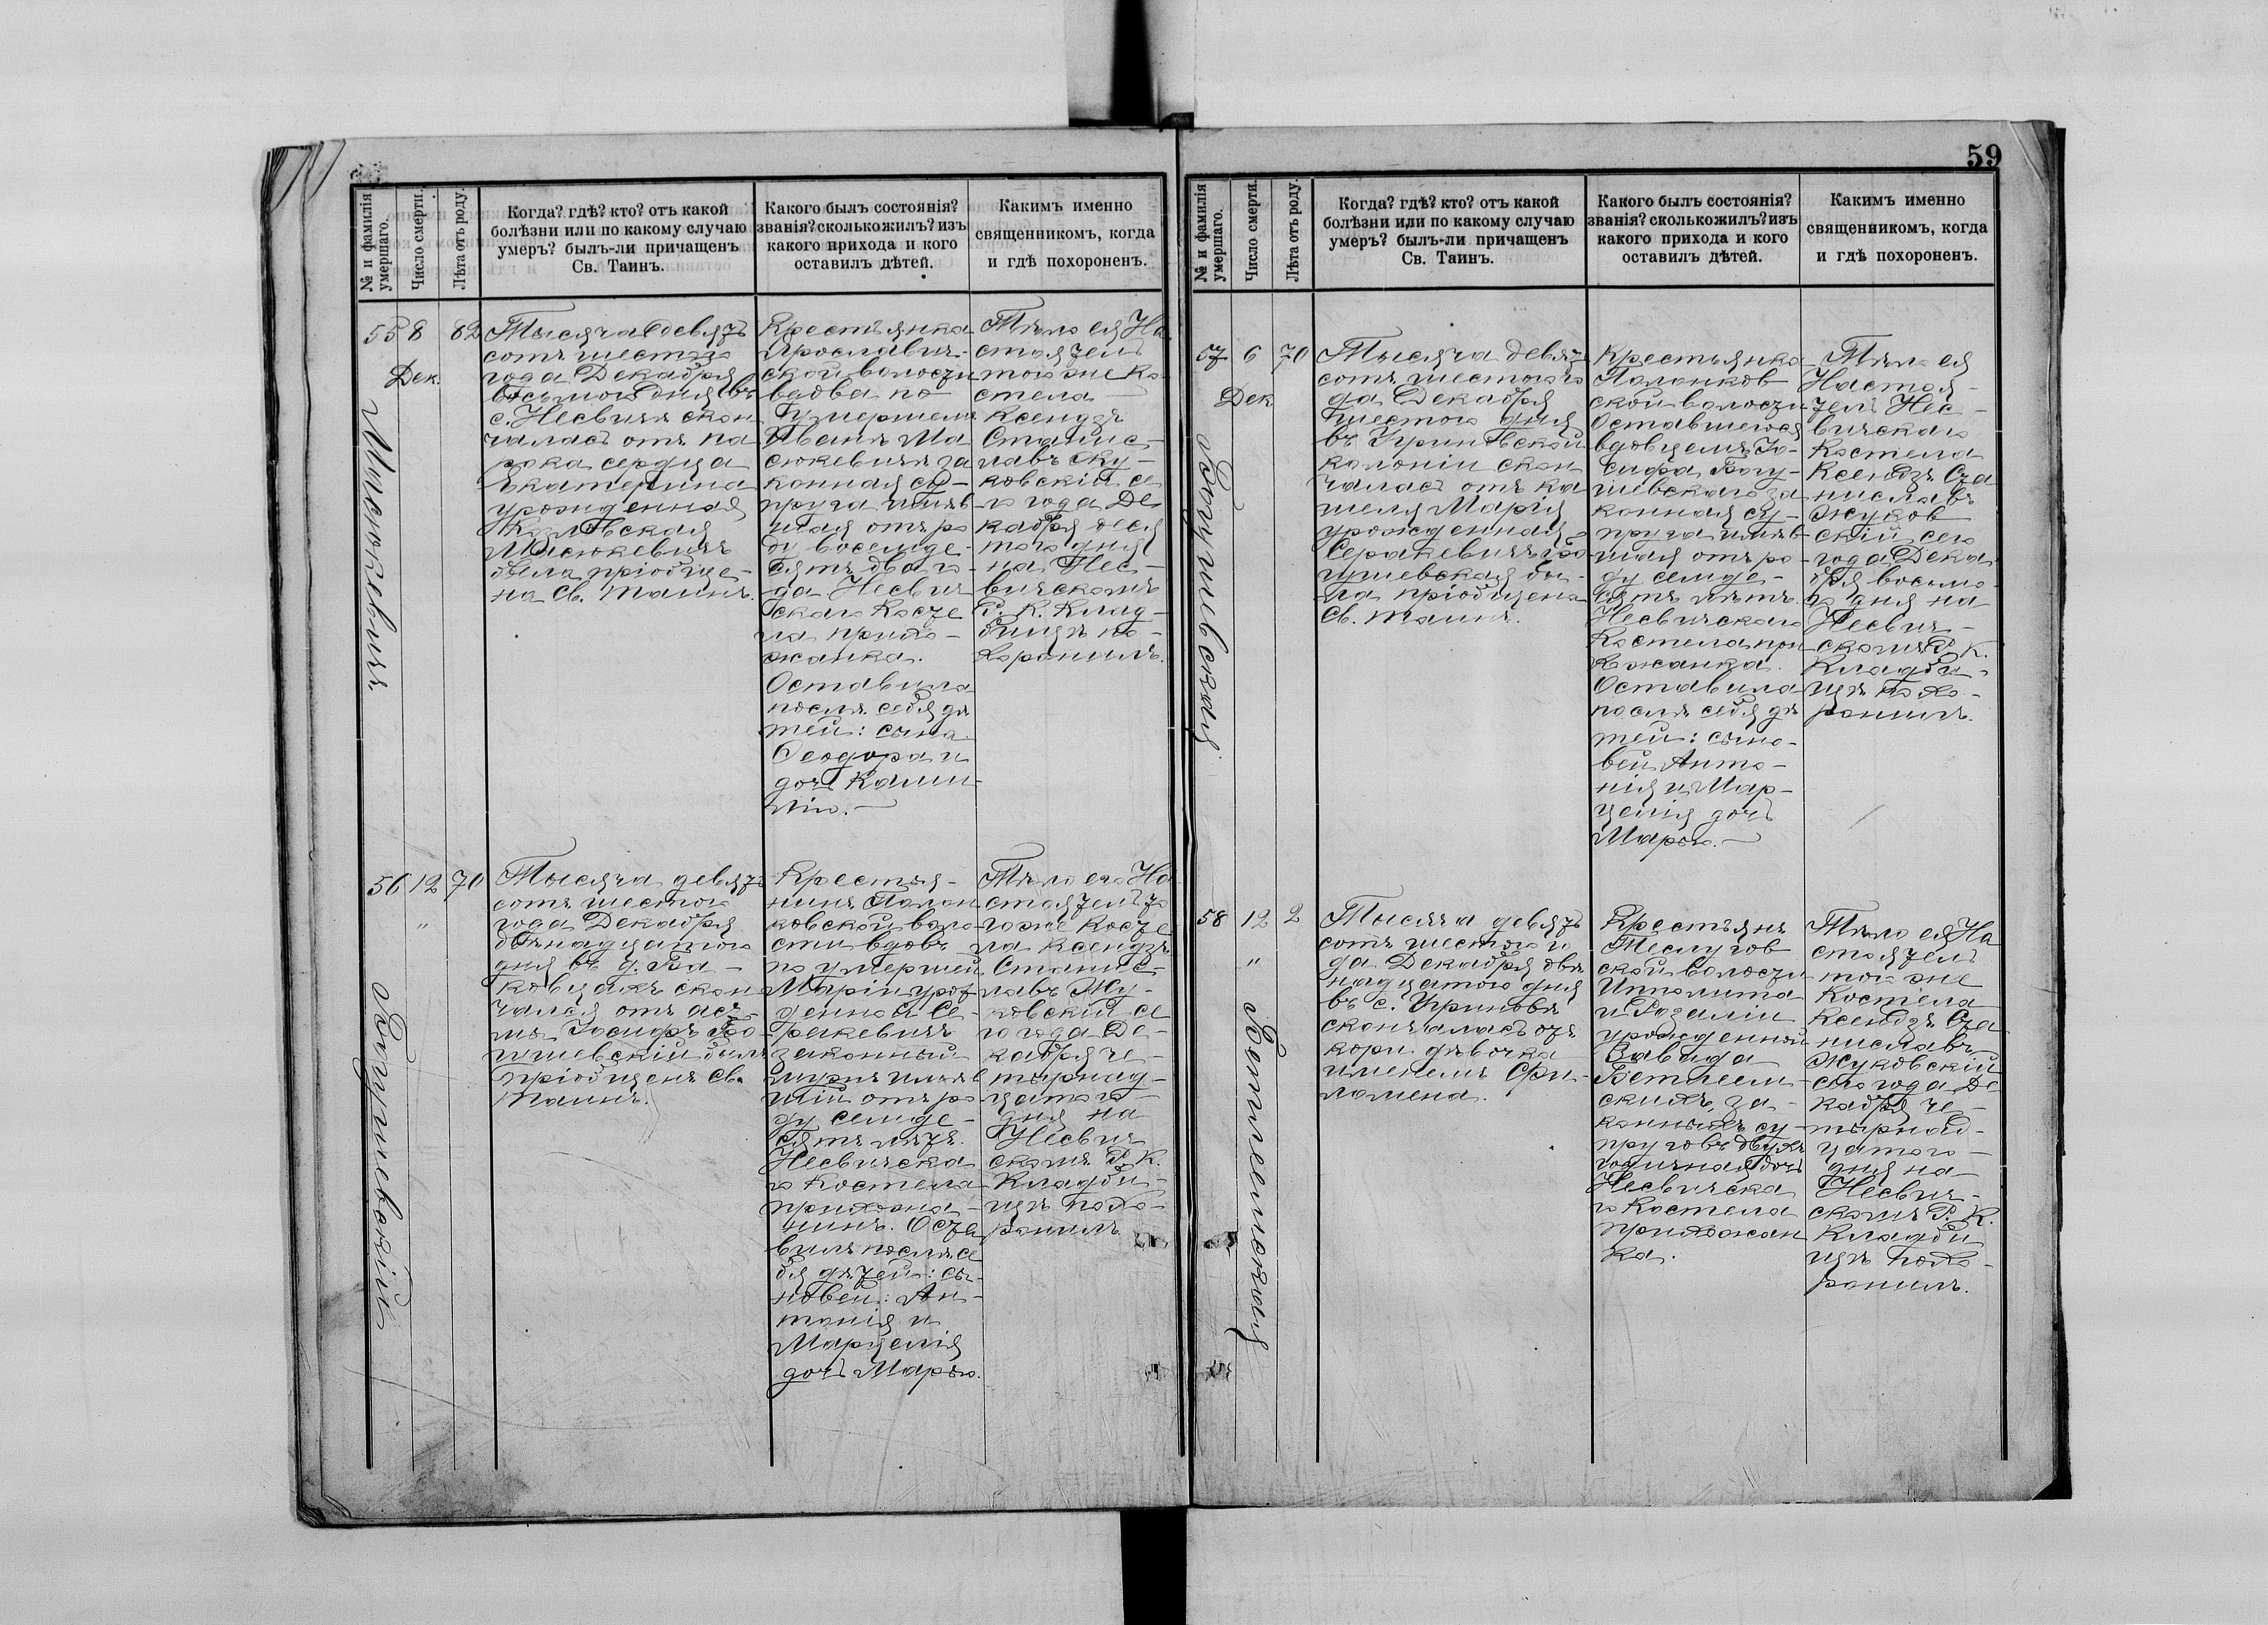 59
№ и фамилія умершаго.
Число смерти.
Лѣта отъ роду.
Когда? гдѣ? кто? отъ какой
болѣзни или по какому случаю
умеръ? былъ-ли причащенъ
Св. Таинъ.
Какого былъ состоянія?
званія? сколько жилъ? изъ
какого прихода и кого
оставилъ дѣтей.
Какимъ именно
священникомъ, когда
и гдѣ похороненъ.
55 8 82
Дек.
Масюкевичъ.
Тысяча девять
сотъ шестого
года Декабря
восьмого дня въ
с. Несвичѣ скон
чалась отъ по
рока сердца
Екатерина
урожденная
Масюкевичъ
была пріобще-
на Св. Таинъ.
Крестьянка
Ярославич-
ской волости
вдова по
умершемъ
Иванѣ Ма
сюкевичѣ за
конная су-
пруга имѣв
шая отъ ро
ду восемде-
сятъ два го-
да Несвич
скаго Косте
ла прихо-
жанка.
Оставила
послѣ себя дѣ
тей: сына
Ѳеодора и
дочь Ками-
лію.—
Тѣло ея На
стоятель
того же Ко-
стела
Ксендзъ
Станис-
лавъ Жу-
ковскій се
го года Де
кабря деся
того дня
на Нес-
вичскомъ
Р. К. Клад-
бищѣ по-
хоронилъ.
56 12 70
"
Богушевскій
Тысяча девять
сотъ шестого
года Декабря
двѣнадцатого
дня въ д. Ба-
ковцахъ скон
чался отъ аст
мы Іосифъ Бо
гушевскій былъ
пріобщенъ Св.
Таинъ.
Крестья-
нинъ Полон
ковской воло-
сти вдовъ
по умершей
Маріи урож
денной Се-
ракевичъ
законный
мужъ имѣв
шій отъ ро
ду семде-
сятъ лѣтъ.
Несвичска
го Костела
прихожа-
нинъ. Оста
вилъ послѣ се
бя дѣтей: сы-
новей: Ан-
тонія и
Марцелія
дочь Марью.
Тѣло его На
стоятель то
го же Косте
ла Ксендзъ
Станис-
лавъ Жу-
ковскій се
го года Де-
кабря че-
тырнад-
цатого
дня на
Несвич
скомъ Р. К.
Кладби-
щѣ похо-
ронилъ
№ и фамилія умершаго.
Число смерти.
Лѣта отъ роду.
Когда? гдѣ? кто? отъ какой
болѣзни или по какому случаю
умеръ? былъ-ли причащенъ
Св. Таинъ.
Какого былъ состоянія?
званія? сколько жилъ? изъ
какого прихода и кого
оставилъ дѣтей.
Какимъ именно
священникомъ, когда
и гдѣ похороненъ.
57 6 70
Дек
Богушевская
Тысяча девять
сотъ шестого го
да Декабря
шестого дня
въ
колоніи скон
чалась отъ ка
шля Марія
урожденная
Серакевичъ Бо
гушевская бы-
ла пріобщена
Св. Таинъ.
Крестьянка
Полонков
ской волости
Оставшегося
вдовцемъ Іо-
сифа Богу-
шевскаго за
конная су-
пруга имѣв-
шая отъ ро-
ду семде-
сятъ лѣтъ.
Несвичскаго
Костела при
хожанка.
Оставила
послѣ себя дѣ
тей: сыно-
вей Анто-
нія и Мар-
целія дочь
Марью.—
Тѣло ея
Настоя-
тель Нес-
вичскаго
Костела
Ксендзъ Ста
ниславъ
Жуков
скій сего
года Дека
бря восьмо-
го дня на
Несвич-
скомъ Р. К.
Кладби-
щѣ похо-
ронилъ.
58 12 2
"
Ветлеемская
Тысяча девять
сотъ шестого го
да Декабря двѣ
надцатого дня
въ с.
скончалась отъ
кори дѣвочка
именемъ Фи-
ломена.
Крестьянъ
Теслугов
ской волости
Ипполита
и Розаліи
урожденной
Завада
Ветлеем-
скихъ, за-
конныхъ су-
пруговъ двухъ
годичная дочь
Несвичска
го Костела
прихожан
ка.
Тѣло ея На
стоятель
того же
Костела
Ксендзъ Ста
ниславъ
Жуковскій
сего года Де
кабря че-
тырнад-
цатого-
дня на
Несвич-
скомъ Р. К.
Кладби
щѣ похо-
ронилъ.